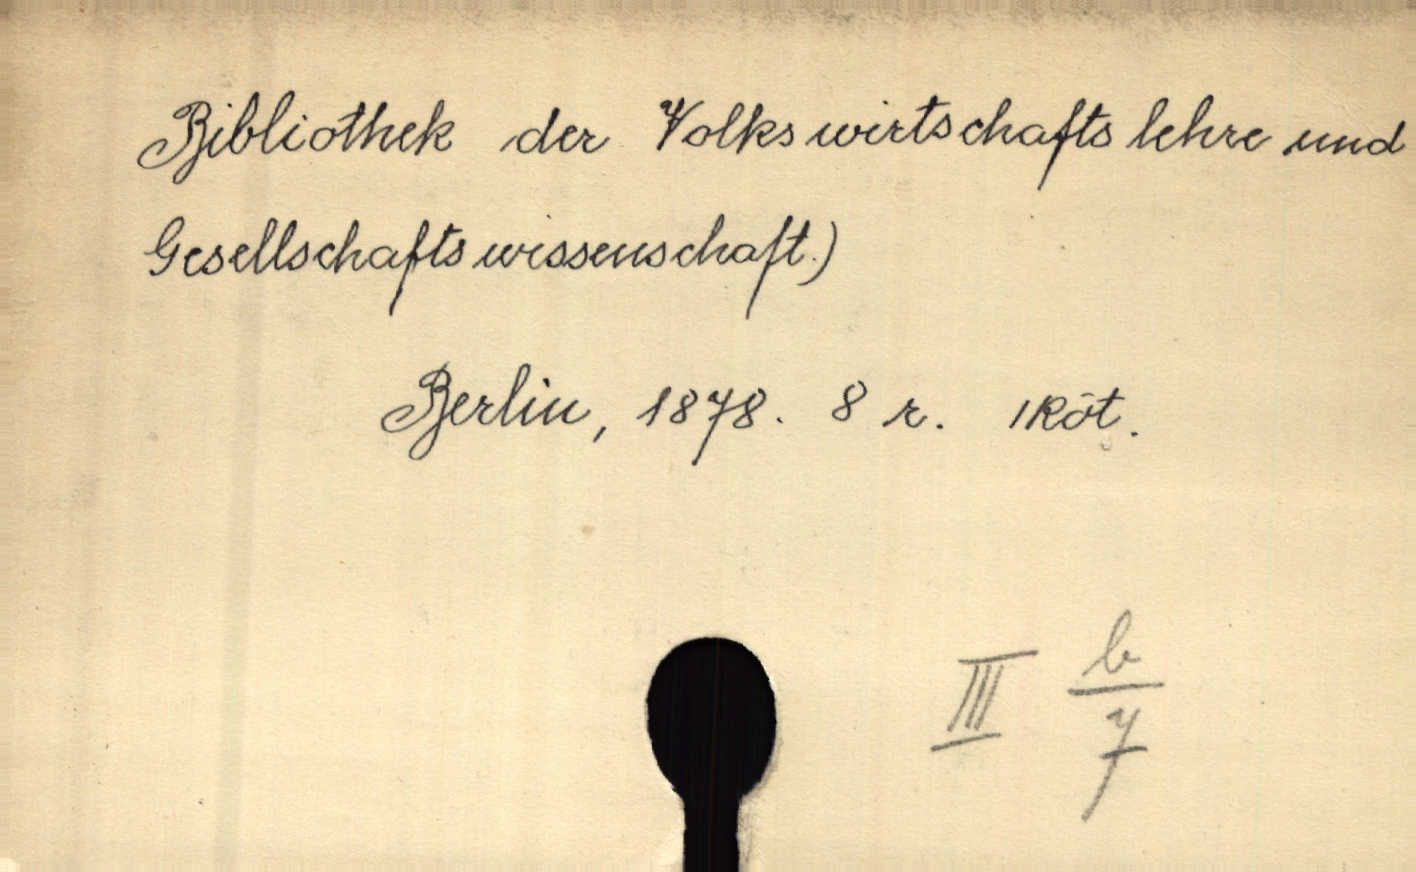 Bibliothek der Volkswirtschaftslehre und
Gesellschaftswissenschaft.)
Berlin, 1878. 8 r. 1 köt.
III b/7